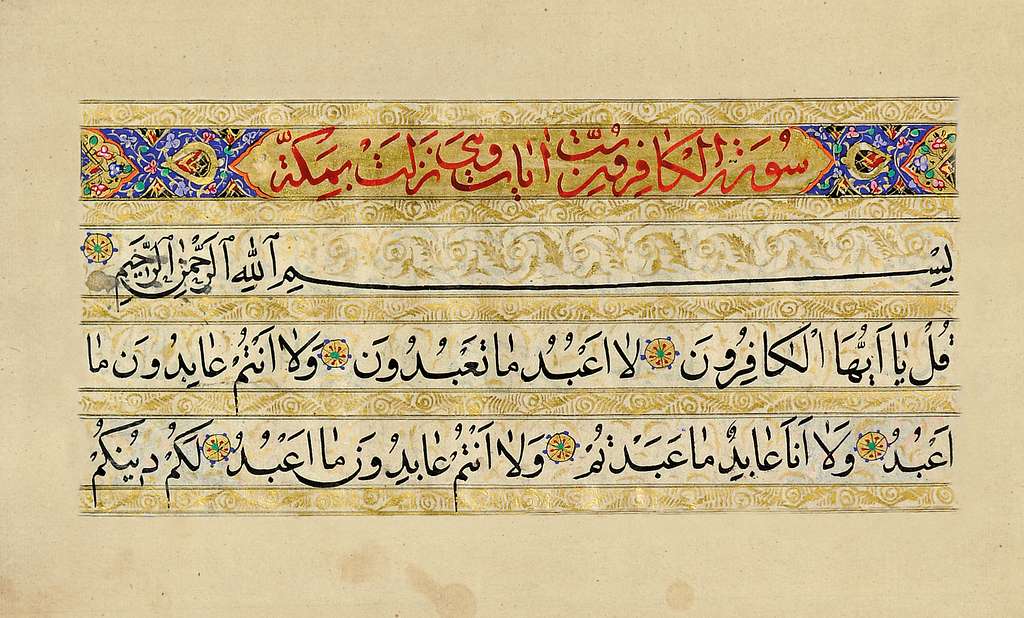 سُورَةُ الْكٰافِرُونَ سِتُّ اٰيات وَهِيَ نَزَلَتْ بِمَكَّةَ
بِسْمِ ٱللّٰهِ ٱلرَّحْمٰنِ ٱلرَّحِيمِ
قُلْ يٰا اَيُّهَا الْكٰافِرُونَ لٰا اَعْبُدُ مٰا تَعْبُدُونَ وَلٰا اَنْتُمْ عٰابِدُونَ مٰا
اَعْبُدُ وَلٰا اَنَا عٰابِدٌ مٰا عَبَدْتُمْ وَلٰا اَنْتُمْ عٰابِدُونَ مٰا اَعْبُدُ لَكُمْ دِينُكُمْ